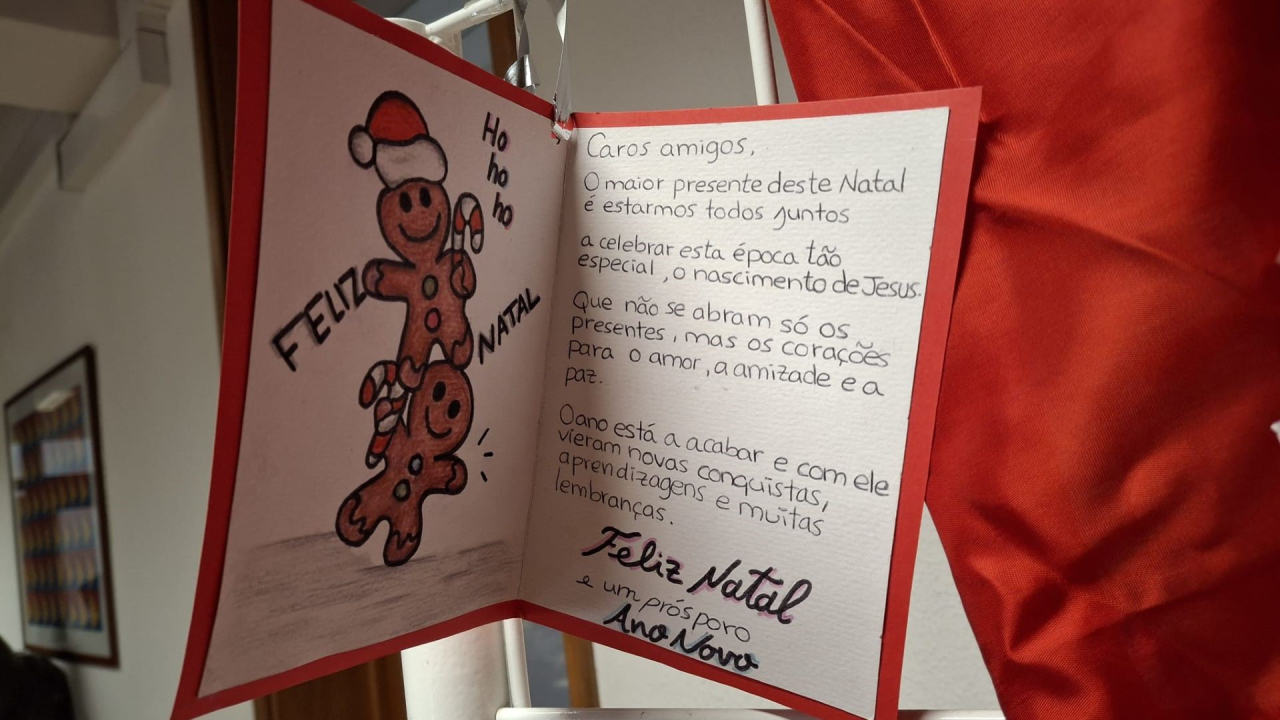 Ho
ho
ho
FELIZ
NATAL
Caros amigos,
O maior presente deste Natal
é estarmos todos juntos
a celebrar esta época tão
especial, o nascimento de Jesus.
Que não se abram só os
presentes, mas os corações
para o amor, a amizade e a
paz.
O ano está a acabar e com ele
vieram novas conquistas,
aprendizagens e muitas
lembranças.
Feliz Natal
e um prósporo
Ano Novo